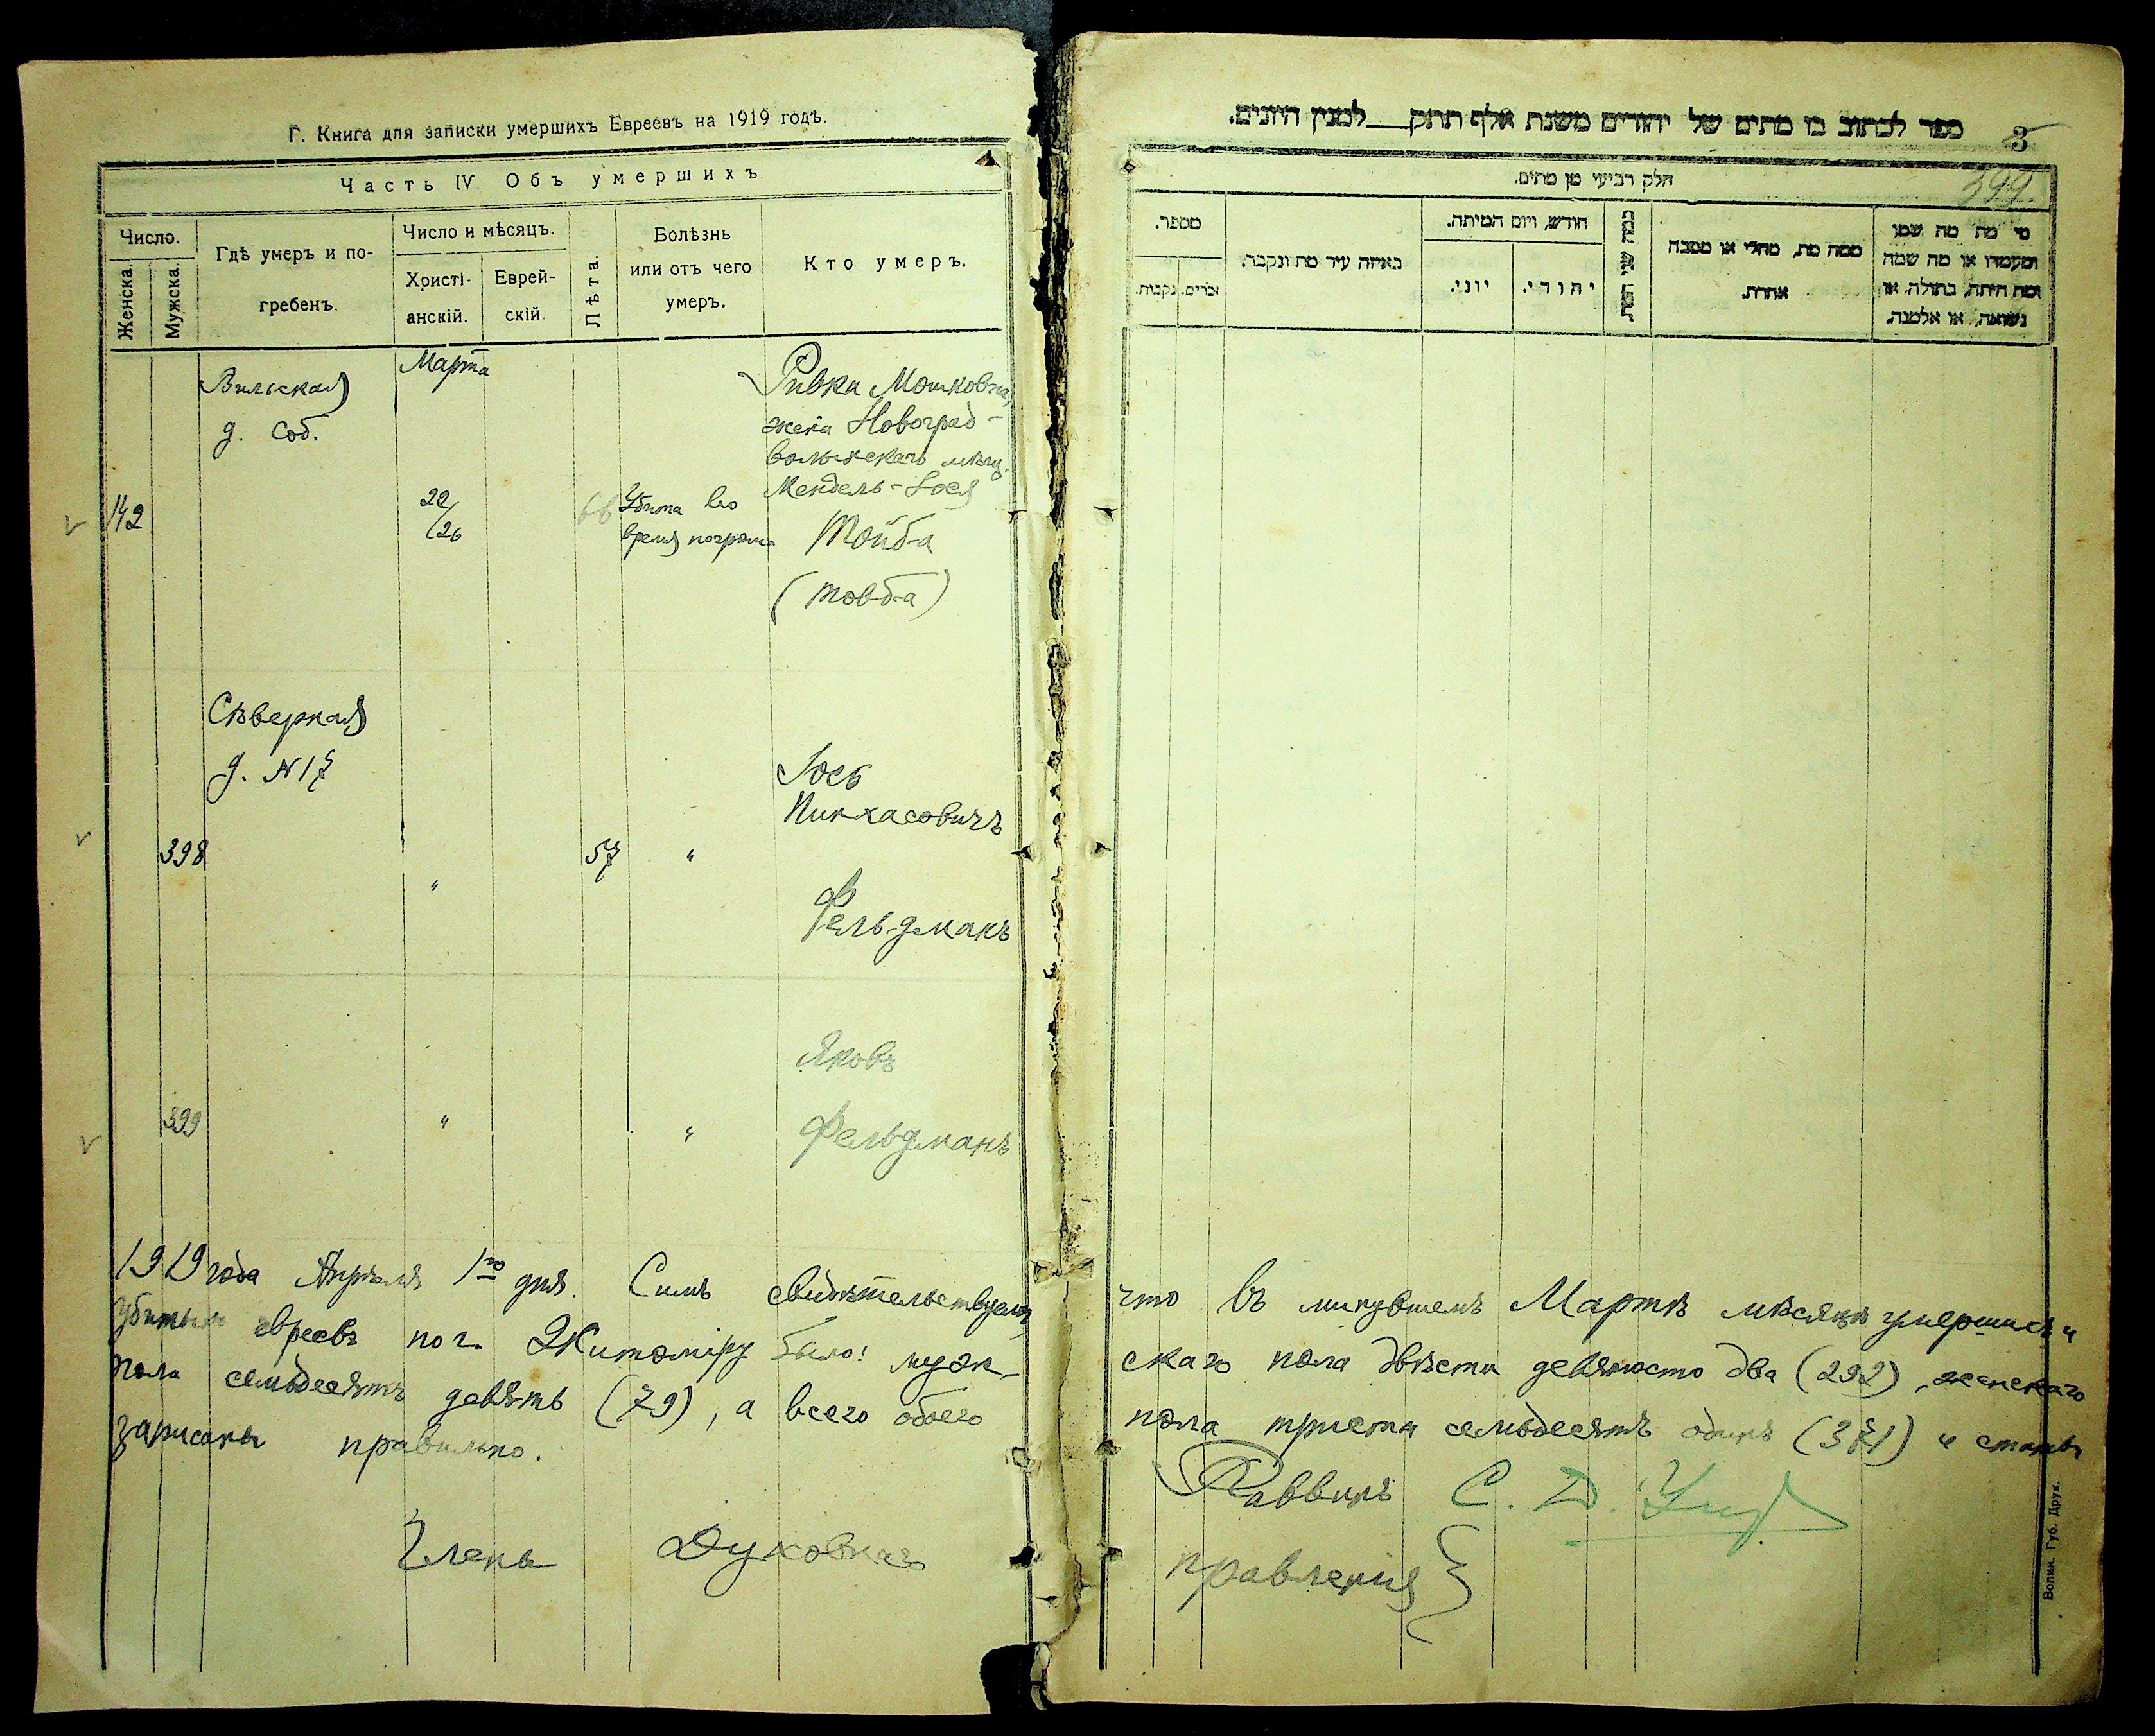 Г. Книга для записки умершихъ Евреевъ на 1919 годъ.
Часть IV Объ умершихъ
Число.
Женска.
Мужска.
Гдѣ умеръ и по-
гребенъ.
Число и мѣсяцъ.
Христі-
анскій.
Еврей-
скій.
Лѣта.
Болѣзнь
или отъ чего
умеръ.
Кто умеръ.
Марта
Вильская
д. соб.
142
22/26
66
Убита во
время погрома
Ривка Мошковна,
жена Новоград-
волынскаго мѣщ.
Мендель-Іося
Тойб-а
(Товб-а)
Сѣверная
д. N 17
398
"
57
"
Іось
Пинхасовичъ
Фельдманъ
399
"
"
Яковъ
Фельдманъ
ספר לכתוב בו מתים של יהודים משנת אלף תתק למנין היונים.
3
399.
חלק רביעי מן מתים.
מספר.
זכרים.
נקבות.
באיזה עיר מת ונקבר.
חודש, ויום המיתה.
יוני.
יהודי.
כמה שני המת
ממה מת, מחלי או מסבה
אחרת.
מי מת מה שמו
ומעמדו או מה שמה
ומה היתה, בתולה, או
נשואה, או אלמנה.
1919 года Апрѣля 1го дня. Симъ свидѣтельствуемъ, что въ минувшемъ Мартѣ мѣсяцѣ умершихъ и
убитыхъ евреевъ по г. Житоміру было: муж-скаго пола двѣсти девяносто два (292), женскаго
пола семьдесятъ девять (79), а всего обоего пола триста семьдесятъ одинъ (371) и
записаны правильно.
Раввинъ С. Д.
Члены Духовнаго правленія }
Волин. Губ. Друк.